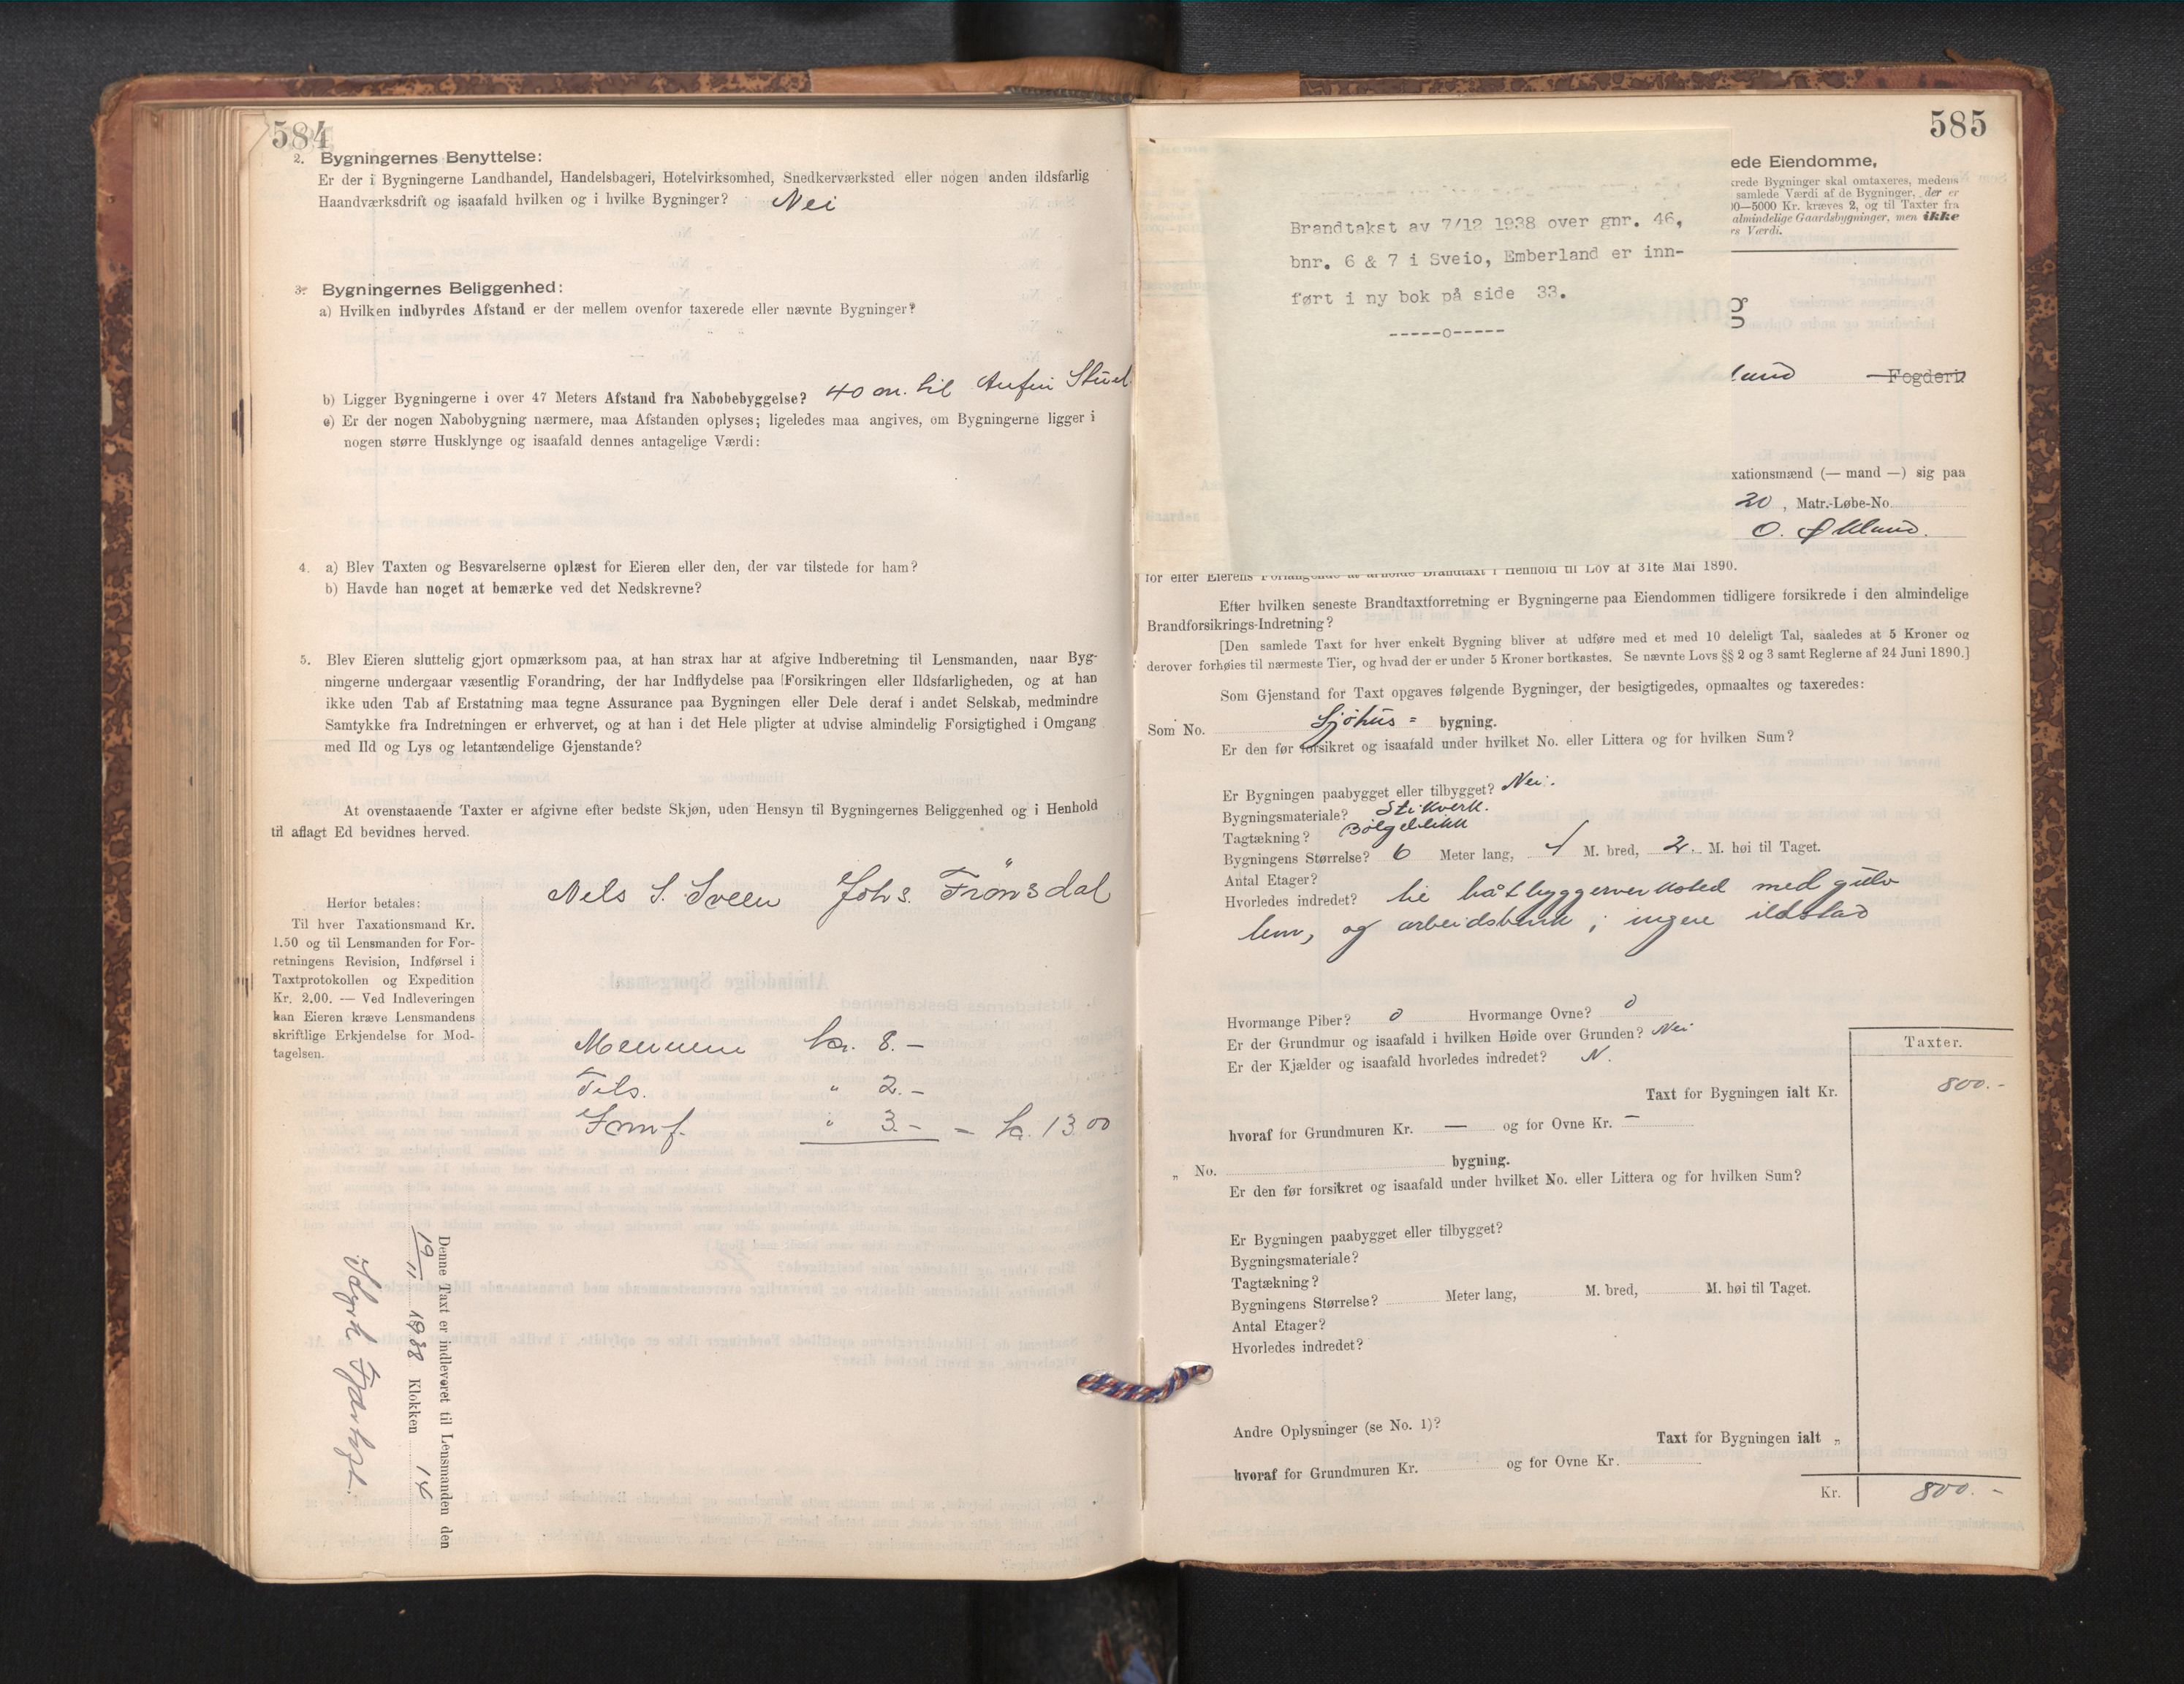 584
2. Bygningernes Benyttelse:
Er der i Bygningerne Landhandel, Handelsbageri, Hotelvirksomhed, Snedkerværksted eller nogen anden ildsfarlig
Haandværksdrift og isaafald hvilken og i hvilke Bygninger? Nei
3. Bygningernes Beliggenhed:
a) Hvilken indbyrdes Afstand er der mellem ovenfor taxerede eller nævnte Bygninger?
b) Ligger Bygningerne i over 47 Meters Afstand fra Nabobebyggelse? 40 m. til
c) Er der nogen Nabobygning nærmere, maa Afstanden oplyses; ligeledes maa angives, om Bygningerne ligger i
nogen større Husklynge og isaafald dennes antagelige Værdi:
4. a) Blev Taxten og Besvarelserne oplæst for Eieren eller den, der var tilstede for ham?
b) Havde han noget at bemærke ved det Nedskrevne?
5. Blev Eieren sluttelig gjort opmærksom paa, at han strax har at afgive Indberetning til Lensmanden, naar Byg-
ningerne undergaar væsentlig Forandring, der har Indflydelse paa Forsikringen eller Ildsfarligheden, og at han
ikke uden Tab af Erstatning maa tegne Assurance paa Bygningen eller Dele deraf i andet Selskab, medmindre
Samtykke fra Indretningen er erhvervet, og at han i det Hele pligter at udvise almindelig Forsigtighed i Omgang
med Ild og Lys og letantændelige Gjenstande?
At ovenstaaende Taxter er afgivne efter bedste Skjøn, uden Hensyn til Bygningernes Beliggenhed og i Henhold
til aflagt Ed bevidnes herved.
Nels S. Sveen Johs. Frönsdal
Herfor betales:
Til hver Taxationsmand Kr.
1.50 og til Lensmanden for For-
retningens Revision, Indførsel i
Taxtprotokollen og Expedition
Kr. 2.00. — Ved Indleveringen
kan Eieren kræve Lensmandens
skriftlige Erkjendelse for Mod-
tagelsen.
Mennene kr. 8.-
" 2.-
" 3.- = kr. 13.00
Denne Taxt er indleveret til Lensmanden den
19/11 1938 Klokken 14
585
Brandtakst av 7/12 1938 over gnr. 46,
bnr. 6 & 7 i Sveio, Emberland er inn-
ført i ny bok på side 33.
-----o-----
ede Eiendomme,
krede Bygninger skal omtaxeres, medens
samlede Værdi af de Bygninger, der er
00—5000 Kr. kræves 2, og til Taxter fra
almindelige Gaardsbygninger, men ikke
rs Værdi.
g
land Fogderi
xationsmænd (— mand —) sig paa
20, Matr.-Løbe-No.
O. Økland.
for efter Eierens Forlangende at afholde Brandtaxt i Henhold til Lov af 31te Mai 1890.
Efter hvilken seneste Brandtaxtforretning er Bygningerne paa Eiendommen tidligere forsikrede i den almindelige
Brandforsikrings-Indretning?
[Den samlede Taxt for hver enkelt Bygning bliver at udføre med et med 10 deleligt Tal, saaledes at 5 Kroner og
derover forhøies til nærmeste Tier, og hvad der er under 5 Kroner bortkastes. Se nævnte Lovs §§ 2 og 3 samt Reglerne af 24 Juni 1890.]
Som Gjenstand for Taxt opgaves følgende Bygninger, der besigtigedes, opmaaltes og taxeredes:
Som No. Sjöhus = bygning.
Er den før forsikret og isaafald under hvilket No. eller Littera og for hvilken Sum?
Er Bygningen paabygget eller tilbygget? Nei.
Bygningsmateriale? Stikverk.
Tagtækning? Bölgeblikk
Bygningens Størrelse? 6 Meter lang, 4 M. bred, 2. M. høi til Taget.
Antal Etager?
Hvorledes indredet? til båtbyggerverksted med gulv
lem, og arbeidsbenk; ingen ildstad
Hvormange Piber? 0 Hvormange Ovne? 0
Er der Grundmur og isaafald i hvilken Høide over Grunden? Nei
Er der Kjælder og isaafald hvorledes indredet? N.
Taxter.
Taxt for Bygningen ialt Kr. 800.-
hvoraf for Grundmuren Kr. — og for Ovne Kr. —
„ No. bygning.
Er den før forsikret og isaafald under hvilket No. eller Littera og for hvilken Sum?
Er Bygningen paabygget eller tilbygget?
Bygningsmateriale?
Tagtækning?
Bygningens Størrelse? Meter lang, M. bred, M. høi til Taget.
Antal Etager?
Hvorledes indredet?
Andre Oplysninger (se No. 1)?
Taxt for Bygningen ialt „
hvoraf for Grundmuren Kr. og for Ovne Kr.
Kr. 800.-